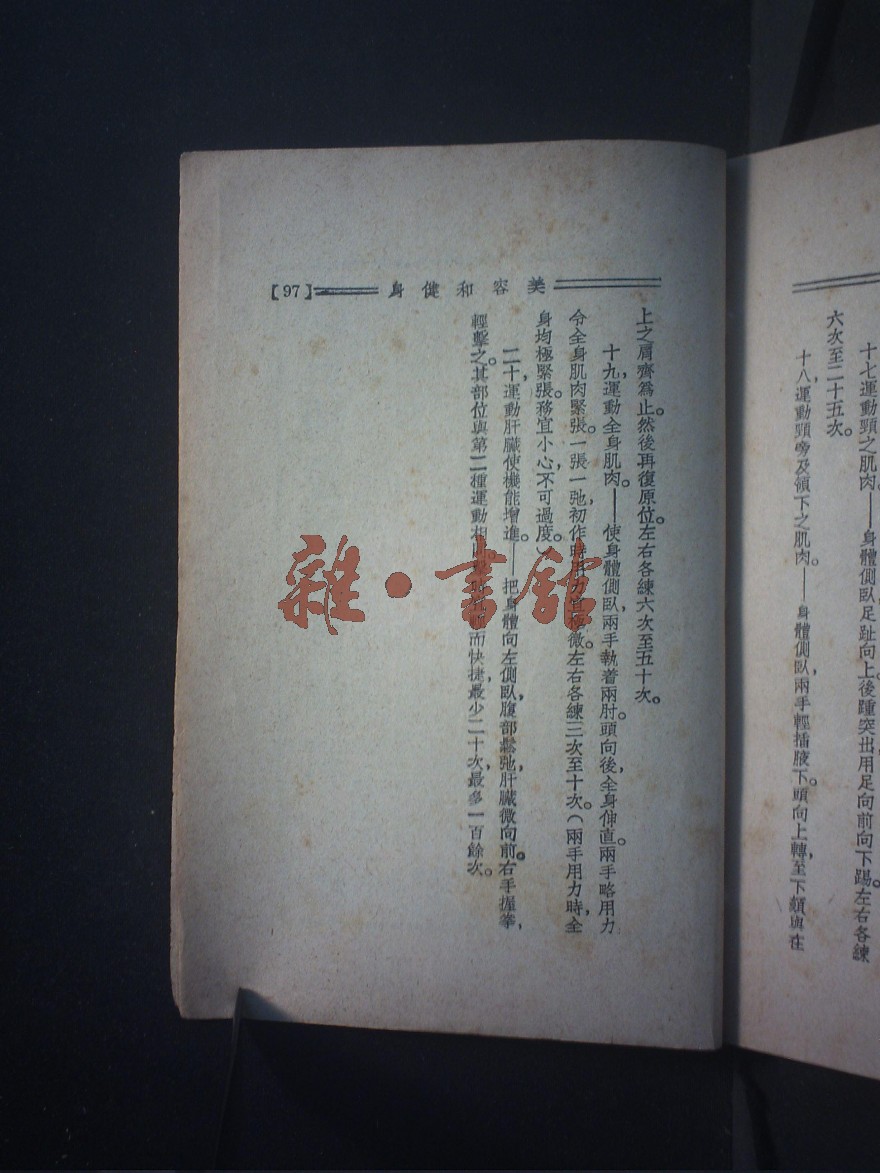 十七,運動頸之肌肉。——身體側臥,足趾向上,後踵突出,用足向前向下踢。左右各練
六次至二十五次。
十八,運動頸旁及頷下之肌肉。——身體側臥,兩手輕插腋下。頭向上轉,至下頷與在
美容和健身【97】
上之肩齊爲止。然後再復原位。左右各練六次至五十次。
十九,運動全身肌肉。——使身體側臥,兩手執着兩肘。頭向後,全身伸直。兩手略用力
令全身肌肉緊張。一張一弛,初作時用力宜極微。左右各練三次至十次。(兩手用力時,全
身均極緊張。務宜小心,不可過度。)
二十,運動肝臟,使機能增進。——把身體向左側臥,腹部鬆弛,肝臟微向前。右手握拳,
輕擊之。其部位與第二種運動相 而快捷,最少二十次,最多一百餘次。
雜·書館